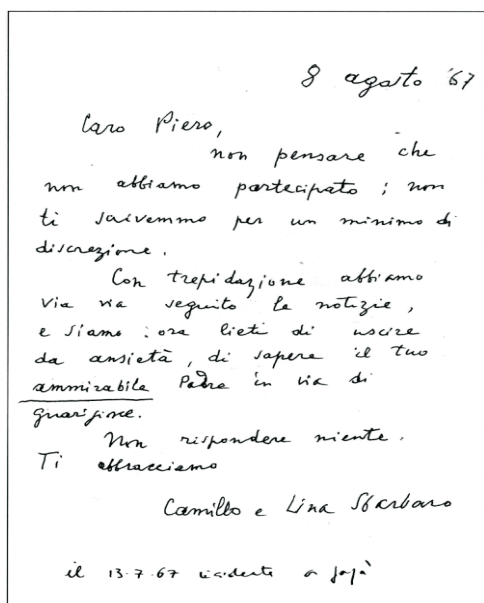 8 agosto '67
Caro Piero,
non pensare che
non abbiamo partecipato; non
ti scrivemmo per un minimo di
discrezione.
Con trepidazione abbiamo
via via seguito le notizie,
e siamo ora lieti di uscire
da ansietà, di sapere il tuo
ammirabile Padre in via di
guarigione.
Non rispondere niente.
Ti abbracciamo
Camillo e Lina Sbarbaro
il 13.7.67 incidente a